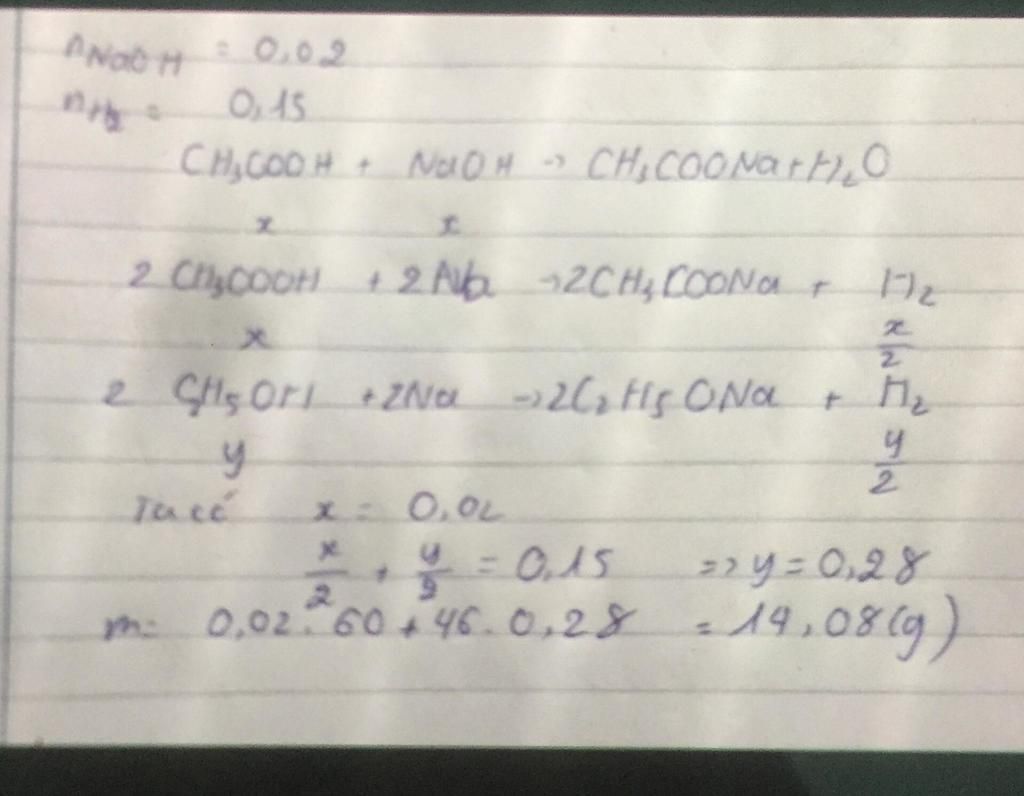 nNaOH = 0,02
nH2 = 0,15
CH3COOH + NaOH -> CH3COONa + H2O
x x
2 CH3COOH + 2 Na -> 2CH3COONa + H2
x x/2
2 C2H5OH + 2Na -> 2C2H5ONa + H2
y y/2
Ta có x = 0,02
x/2 + y/2 = 0,15 => y = 0,28
m = 0,02 . 60 + 46 . 0,28 = 14,08(g)